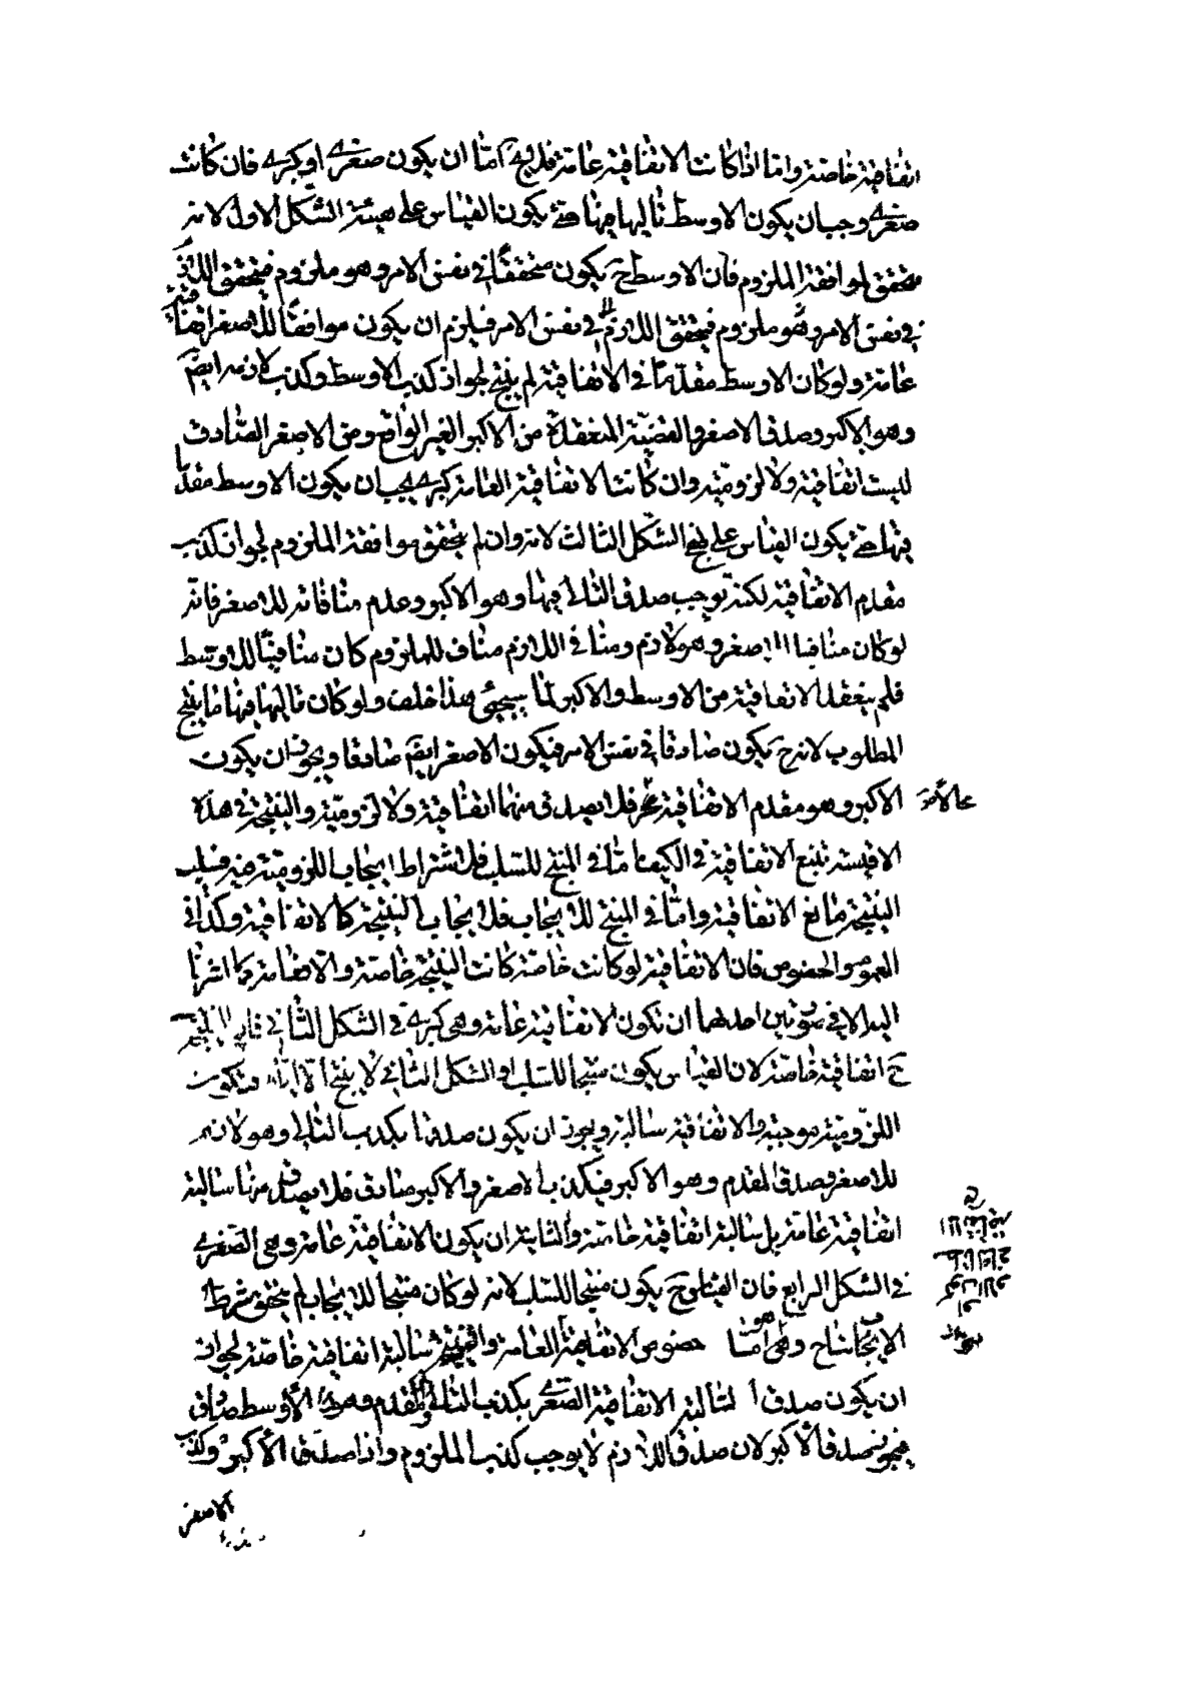 اتفاقية خاصة واما اذا كانت الاتفاقية عامة فلا يخ امّا ان يكون صغرى او كبرى فان كانت
صغرى وجب ان يكون الاوسط تاليها فيها حتى يكون القياس على هيئة الشكل الاول لانه
محقق لموافقة الملزوم فان الاوسط ح يكون متحققا في نفس الامر وهو ملزوم فيتحقق اللازم
في نفس الامر وهو ملزوم فيتحقق اللازم في نفس الامر فيلزم ان يكون موافقا للاصغر اتفاقية
عامة ولو كان الاوسط مقدّما في الاتفاقية لم ينتج لجواز كذب الاوسط وكذب لازمه ايضً
وهو الاكبر وصدق الاصغر والقضيّة المنعقدة من الاكبر الغير الواقع ومن الاصغر الصّادق
ليست اتفاقية ولا لزوميّة وان كانت الاتفاقية العامة كبرى يجب ان يكون الاوسط مقدّما
فيها حتى يكون القياس على نهج الشكل الثالث لانه وان لم يتحقق موافقة الملزوم لجواز كذب
مقدم الاتفاقية لكنه توجب صدق التالى فيها وهو الاكبر وعدم منافاته للاصغر فانّه
لو كان منافيا للاصغر وهو لازم ومنافى اللازم مناف للملزوم كان منافيًا للاوسط
فلم ينعقد الاتفاقية من الاوسط والاكبر لما سيجئ هذا خلف ولو كان تاليها فيها ما ينتج
المطلوب لانه ح يكون صادقا في نفس الامر فيكون الاصغر ايضً صادقا ويجوز ان يكون
الاكبر وهو مقدم الاتفاقية فلا يصدق منهما اتفاقية ولا لزوميّة والنتيجة في هذه
الاقيسة تتبع الاتفاقية في الكيف امّا في المنتج للسلب فلاشتراط ايجاب اللزوميّة فيه فسلب
النتيجة تابع الاتفاقية وامّا في المنتج للايجاب فلايجاب النتيجة كالاتفاقية وكذا في
العموم والخصوص فان الاتفاقية لو كانت خاصّة كانت النتيجة خاصّة والا فعامة كما اشرنا
اليه الا في صورتين احدهما ان تكون الاتفاقية عامة وهى كبرى في الشكل الثاني فان النتيجة
ح اتفاقية خاصّة لان القياس يكون منتجا للسلب اذ الشكل الثاني لا ينتج الا اياه فتكون
اللزوميّة موجبة والاتفاقية سالبة ويجوز ان يكون صدقها بكذب التالى وهو لازم
للاصغر وصدق المقدم وهو الاكبر فيكذب الاصغر والاكبر صادق فلا يصدق منها سالبة
اتفاقية عامة بل سالبة اتفاقية خاصّة والثانية ان يكون الاتفاقية عامة وهى الصّغرى
في الشكل الرابع فان القياس ح يكون منتجا للسلب لانه لو كان منتجا للايجاب لم يتحقق شرط
الانتاج وهو امّا خصوص الاتفاقية العامة والنتيجة سالبة اتفاقية خاصّة لجواز
ان يكون صدق السالبة الاتفاقية الصّغرى بكذب التالى والمقدم وهو الاوسط صادق
فيجوز صدق الاكبر لان صدق اللازم لا يوجب كذب الملزوم واذا صدق الاكبر وكذب
الاصغر